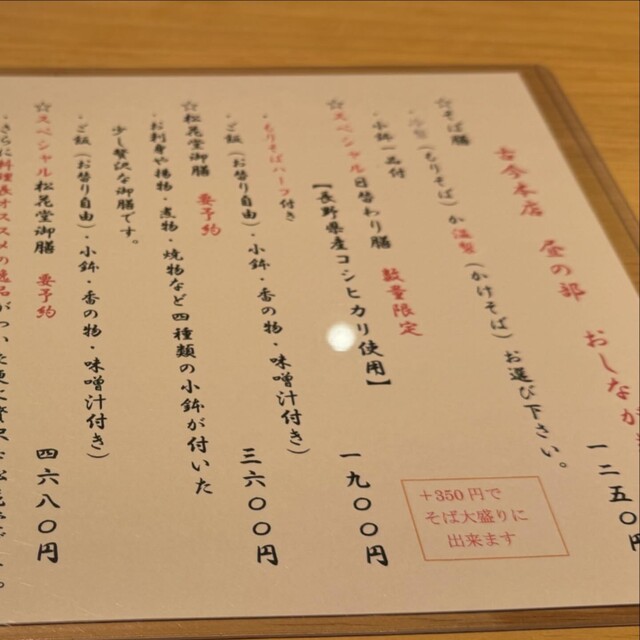 古今本店 昼の部 おしなが
☆そば膳 一二五〇円
(もりそば)か温製(かけそば)お選び下さい。
小鉢一品付
+350円で
そば大盛りに
出来ます
☆スペシャル日替わり膳 数量限定 一九〇〇円
【長野県産コシヒカリ使用】
・もりそばハーフ付き
・ご飯(お替り自由)・小鉢・香の物・味噌汁付き)
☆松花堂御膳 要予約 三六〇〇円
・お刺身や揚物・煮物・焼物など四種類の小鉢が付いた
少し贅沢な御膳です。
・ご飯(お替り自由)・小鉢・香の物・味噌汁付き)
☆スペシャル松花堂御膳 要予約 四六八〇円
・さらに料理長オススメの逸品が